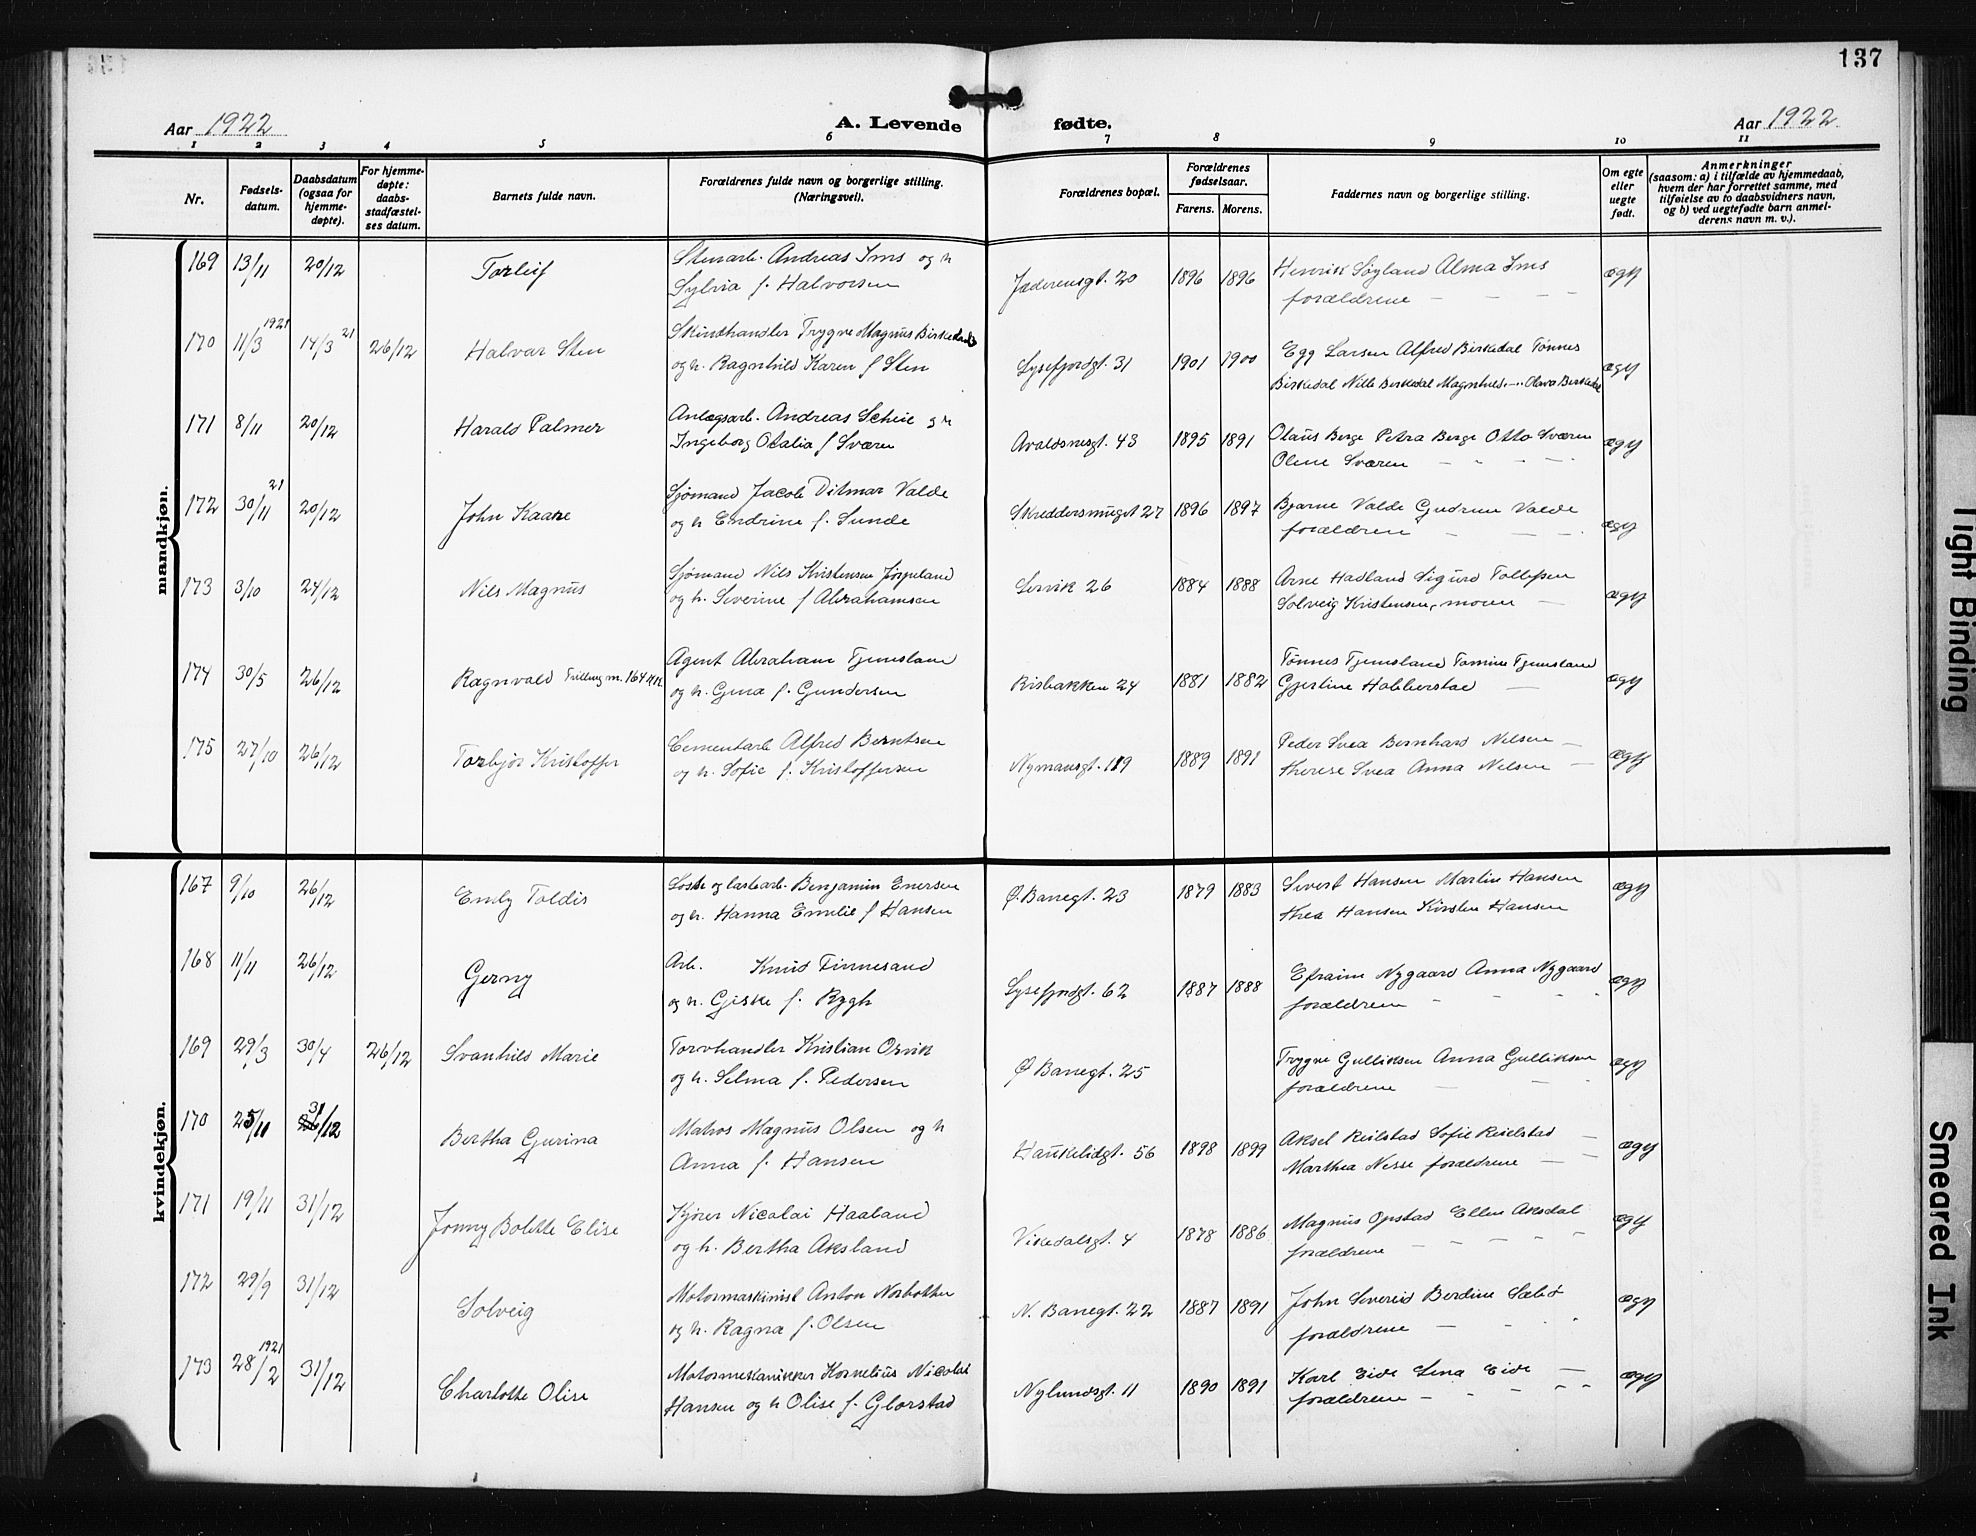 137
Aar 1922
A. Levende
fødte.
Aar 1922
1 2 3 4 5 6 7 8 9 10 11
Nr.
Fødsels-
datum.
Daabsdatum
(ogsaa for
hjemme-
døpte).
For hjemme-
døpte:
daabs-
stadfæstel-
ses datum.
Barnets fulde navn.
Forældrenes fulde navn og borgerlige stilling.
(Næringsvei).
Forældrenes bopæl.
Forældrenes
fødselsaar.
Farens. Morens.
Faddernes navn og borgerlige stilling.
Om egte
eller
uegte
født.
Anmerkninger
(saasom: a) i tilfælde av hjemmedaab,
hvem der har forrettet samme, med
tilføielse av to daabsvidners navn,
og b) ved uegtefødte barn anmel-
derens navn m. v.).
mandkjøn.
169 13/11 20/12 Torleif
Stenarb. Andreas Ims og h
Sylvia f. Halvorsen
Jæderensgt. 20 1896 1896
Henrik Søyland Alma Ims
forældrene – – – –
ægt
170 11/3 1921 14/3 21 26/12 Halvar Sten
Skindhandler Trygve Magnus Birkedal
og h. Ragnhild Karen f Sten
Lysefjordgt. 31 1901 1900
Egg Larsen Alfred Birkedal Tønnes
Birkedal Nille Birkedal Magnhild –"– Olava Birkedal
ægt
171 8/11 20/12 Harald Palmer
Anlægsarb. Andreas Scheie og h
Ingeborg Otalia f Sværen
Avaldsnesgt. 43 1895 1891
Olaus Berge Petra Berge Otto Sværen
Oline Sværen – – – –
ægt
172 30/11 21 20/12 John Kaare
Sjømand Jacob Ditmar Valde
og h Endrine f. Sunde
Skreddersmuget 27 1896 1897
Bjarne Valde Gudrun Valde
forældrene – – – –
ægt
173 3/10 24/12 Nils Magnus
Sjømand Nils Kristensen Jørpeland
og h. Severine f Abrahamsen
Lervik 26 1884 1888
Arne Hadland Sigurd Tollefsen
Solveig Kristensen, moren –
ægt
174 30/5 26/12 Ragnvald Tvilling m. 164
Agent Abraham Tjemsland
og h. Gina f. Gundersen
Risbakken 24 1881 1882
Tønnes Tjemsland Tomine Tjemsland
Gjertine Habberstad –
ægt
175 27/10 26/12 Torbjør Kristoffer
Cementarb Alfred Berntsen
og h. Sofie f. Kristoffersen
Nymansgt. 119 1889 1891
Peder Svea Bernhard Nilsen –
Therese Svea Anna Nilsen –
ægt
kvindekjøn.
167 9/10 26/12 Emly Toldis
Losse og lastearb. Benjamin Enersen
og h. Hanna Emelie f Hansen
Ø. Banegt. 23 1879 1883
Sivert Hansen Martin Hansen
Thea Hansen Kirsten Hansen
ægt
168 11/11 26/12 Gerny
Arb. Knud Finnesand
og h. Giske f. Rygh
Lysefjordgt. 62 1887 1888
Efraim Nygaard Anna Nygaard
forældrene – – – –
ægt
169 29/3 30/4 26/12 Svanhild Marie
Torvhandler Kristian Orvik
og h. Selma f. Pedersen
Ø Banegt. 25
Trygve Gulliksen Anna Gulliksen
forældrene – – –
ægt
170 25/10 31/12 Bertha Gjurina
Matros Magnus Olsen og h
Anna f. Hansen
Haukelidgt. 56 1898 1899
Aksel Reilstad Sofie Reielstad –
Marthea Nesse forældrene – –
ægt
171 19/11 31/12 Jonny Bolette Elise
Kjører Nicolai Haaland
og h. Bertha Aksland
Vikedalsgt. 4 1878 1886
Magnus Opstad Ellen Aksdal
forældrene – – – – –
ægt
172 29/9 31/12 Solveig
Motormaskinist Anton Norbotten
og h. Ragna f. Olsen
N. Banegt. 22 1887 1891
John Severeid Berdine Sæbø
forældrene – – – –
ægt
173 28/2 1921 31/12 Charlotte Olise
Motormekanikker Kornelius Nicolai
Hansen og h Olise f. Glorstad
Nylundsgt. 11 1890 1891
Karl Eide Lena Eide –
forældrene – – – – –
ægt
Tight Binding
Smeared Ink